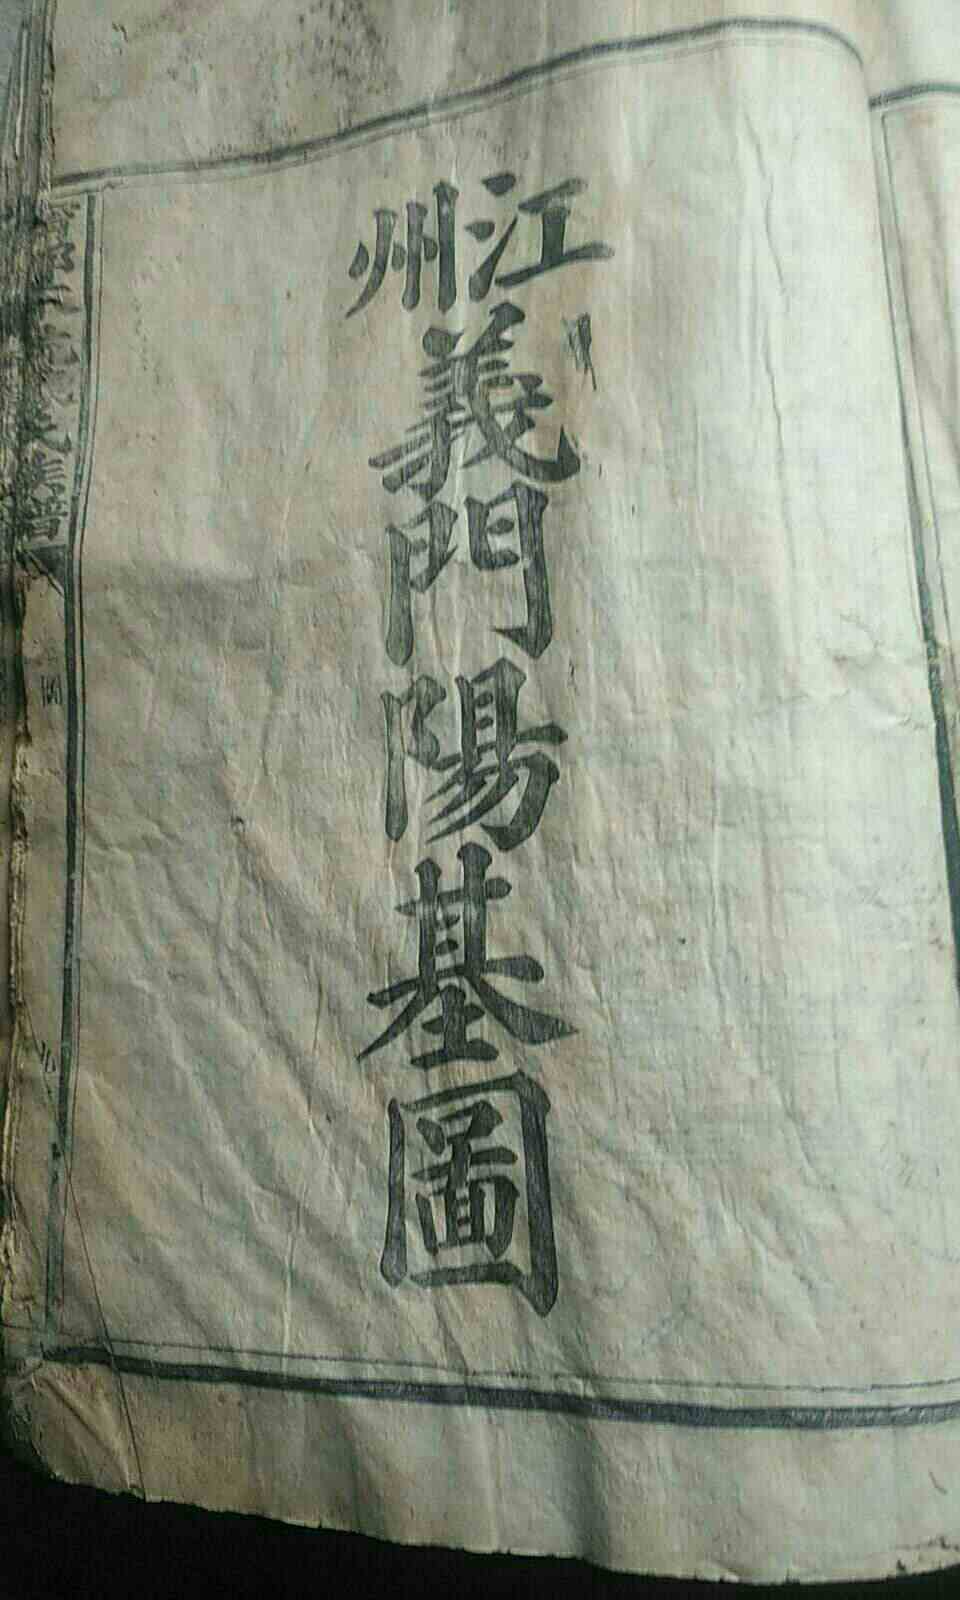 江州
義門陽基圖